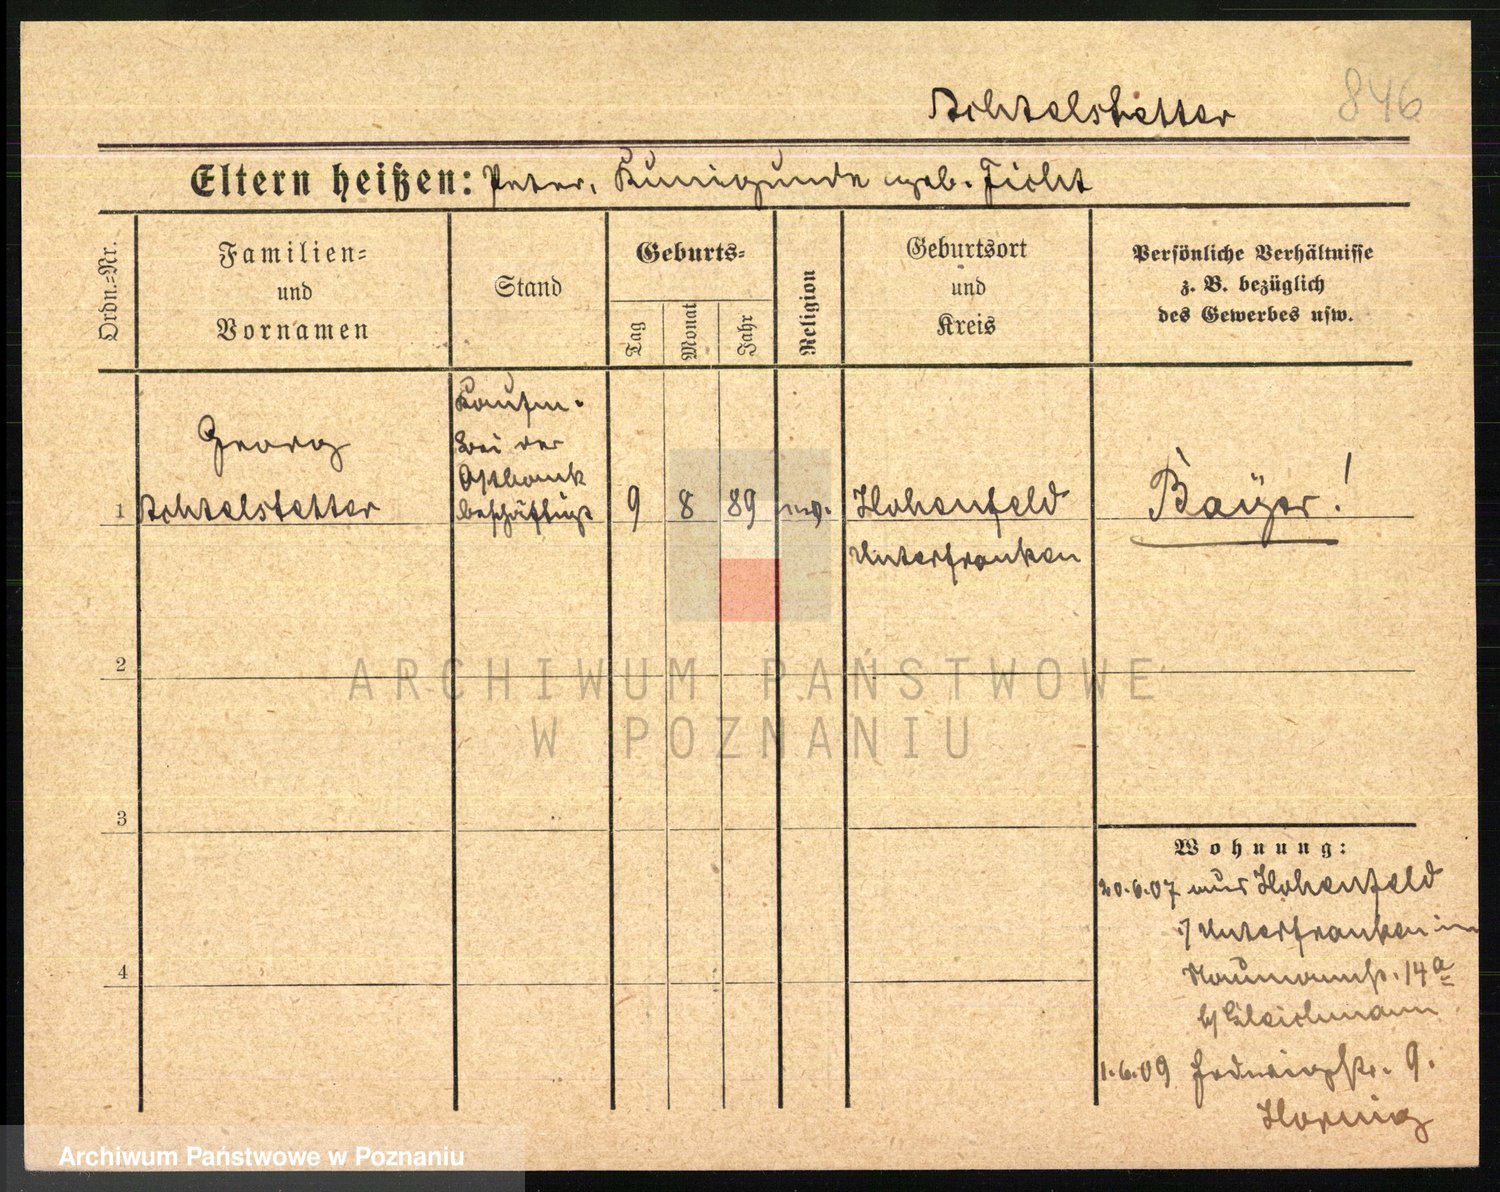 Achtelstetter
846
Eltern heißen: Peter, Kunigunde geb. Ficht
Ordn.-Nr.
Familien-
und
Vornamen
Stand
Geburts-
Tag
Monat
Jahr
Religion
Geburtsort
und
Kreis
Persönliche Verhältnisse
z. B. bezüglich
des Gewerbes usw.
1
Georg
Achtelstetter
Kaufm.
bei der
Ostbank
beschäftigt
9
8
89
ev.
Hohenfeld
Unterfranken
Bayer!
2
3
4
ARCHIWUM PAŃSTWOWE
W POZNANIU
Wohnung:
20.6.07 aus Hohenfeld
i/ Unterfranken in
Naumannstr. 14a
b/ Gleichmann
1.6.09 Hedwigstr. 9.
Hornig
Archiwum Państwowe w Poznaniu